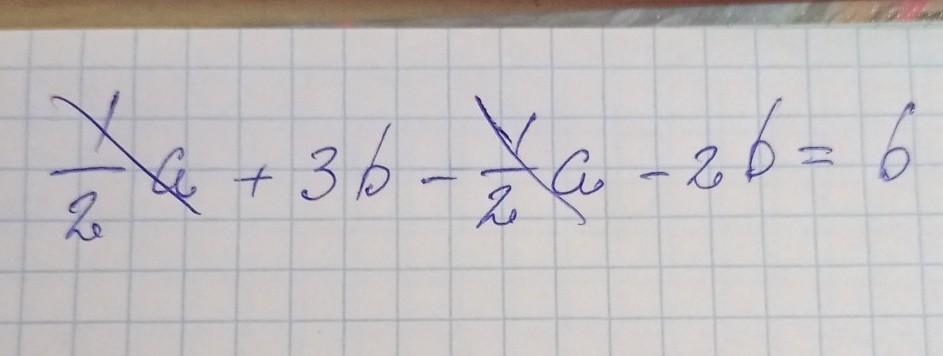 1/2 a + 3b - 1/2 a - 2b = b